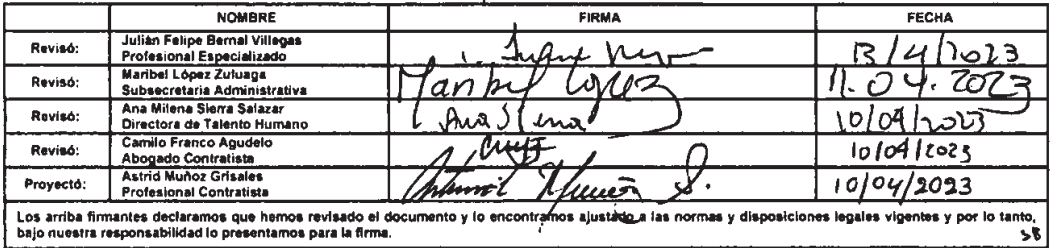 NOMBRE FIRMA FECHA
Revisó: Julián Felipe Bernal Villegas
Profesional Especializado 13/4/2023
Revisó: Maribel López Zuluaga
Subsecretaria Administrativa Maribel López 11.04.2023
Revisó: Ana Milena Sierra Salazar
Directora de Talento Humano Ana Sierra 10/04/2023
Revisó: Camilo Franco Agudelo
Abogado Contratista 10/04/2023
Proyectó: Astrid Muñoz Grisales
Profesional Contratista 10/04/2023
Los arriba firmantes declaramos que hemos revisado el documento y lo encontramos ajustado a las normas y disposiciones legales vigentes y por lo tanto,
bajo nuestra responsabilidad lo presentamos para la firma.